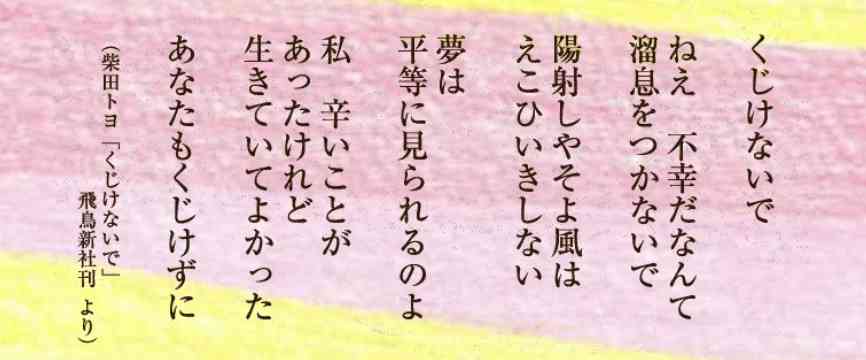 くじけないで
ねえ　不幸だなんて
溜息をつかないで
陽射しやそよ風は
えこひいきしない
夢は
平等に見られるのよ
私　辛いことが
あったけれど
生きていてよかった
あなたもくじけずに
（柴田トヨ「くじけないで」
飛鳥新社刊　より）